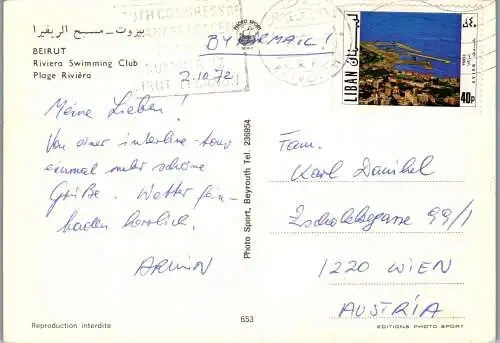 بيروت – مسبح الريفيرا
BEIRUT
Riviera Swimming Club
Plage Riviéra
PHOTO SPORT
BY AIRMAIL!
2.10.72
LIBAN
40p
Meine Lieben!
Von einer interline-tour
einmal mehr schöne
Grüße. Wetter fein-
baden herrlich.
ARMIN
Photo Sport, Beyrouth Tel. 236954
Fam.
Karl Danihel
Zschokkegasse 99/1
1220 WIEN
AUSTRIA
Reproduction interdite
653
EDITIONS PHOTO SPORT